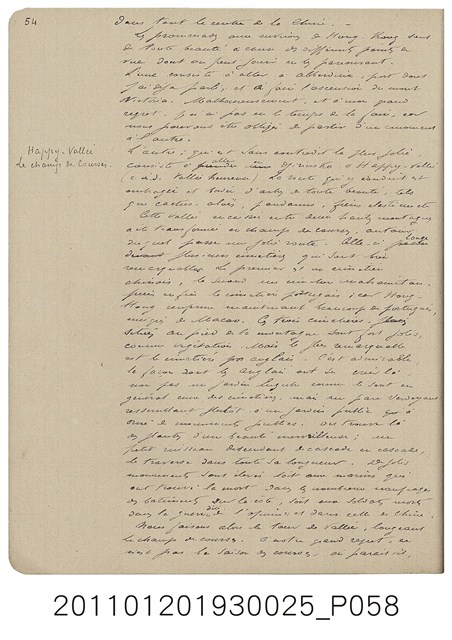 54
dans tout le centre de la Chine. —
Les promenades aux environs de Hong-Kong sont
de toute beauté à cause des différents points de
vue dont on peut jouir en les parcourant.
L'une consiste à aller à Aberdeen, port dont
j'ai déjà parlé, et à faire l'ascension du mont
Victoria. Malheureusement, et à mon grand
regret, je n'ai pas eu le temps de la faire, car
nous pouvons être obligé de partir d'un moment
à l'autre.
Happy-Vallée
Le champ de Courses.
L'autre, qui est sans contredit la plus jolie
consiste à aller en djinrisko à Happy-Valley
(c.à.d. Vallée heureuse). La route qui y conduit est
ombragée et bordée d'arbres de toute beauté, tels
que cactus, aloès, pandanus, 
Cette vallée encaissée entre deux hautes montagnes
a été transformée en champs de courses, autour
duquel passe une jolie route. Elle longe
plusieurs cimetières qui sont très
remarquables. Le premier est un cimetière
chinois, le second un cimetière mahométan,
puis enfin le cimetière portugais (car Hong-
Kong renferme maintenant beaucoup de portugais,
émigrés de Macao). Ces trois cimetières,
situés au pied de la montagne sont fort jolis,
comme végétation. Mais le plus remarquable
est le cimetière anglais. C'est admirable
la façon dont les Anglais ont su créer là
non pas un jardin lugubre comme le sont en
général ceux des cimetières, mais un parc verdoyant
ressemblant plutôt à un jardin public
orné de monuments publics. On trouve là
des plantes d'une beauté merveilleuse; un
petit ruisseau descendant de cascade en cascade,
le traverse dans toute sa longueur. De jolis
monuments sont élevés soit aux marins qui
ont trouvé la mort dans les nombreux naufrages
des bâtiments sur la côte, soit aux soldats morts
dans la guerre dite de l'opium et dans celle de Chine.
Nous faisons alors le tour de la vallée, longeant
le champs de courses. À notre grand regret, ce
n'est pas la saison des courses, car paraît-il,
201101201930025_P058